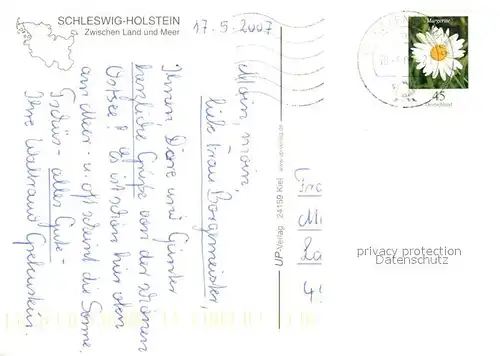 SCHLESWIG-HOLSTEIN
Zwischen Land und Meer
17-5-2007
Moin, moin,
liebe Frau Borgmeister,
Ihnen Dore und Günter
herzliche Grüße von der schönen
Ostsee! Es ist schön hier oben
am Meer - u. oft scheint die Sonne.
Tschüs - alles Gute -
Ihre Waltraud
UP-Verlag 24159 Kiel
Margerite
45
Deutschland
privacy protection
Datenschutz